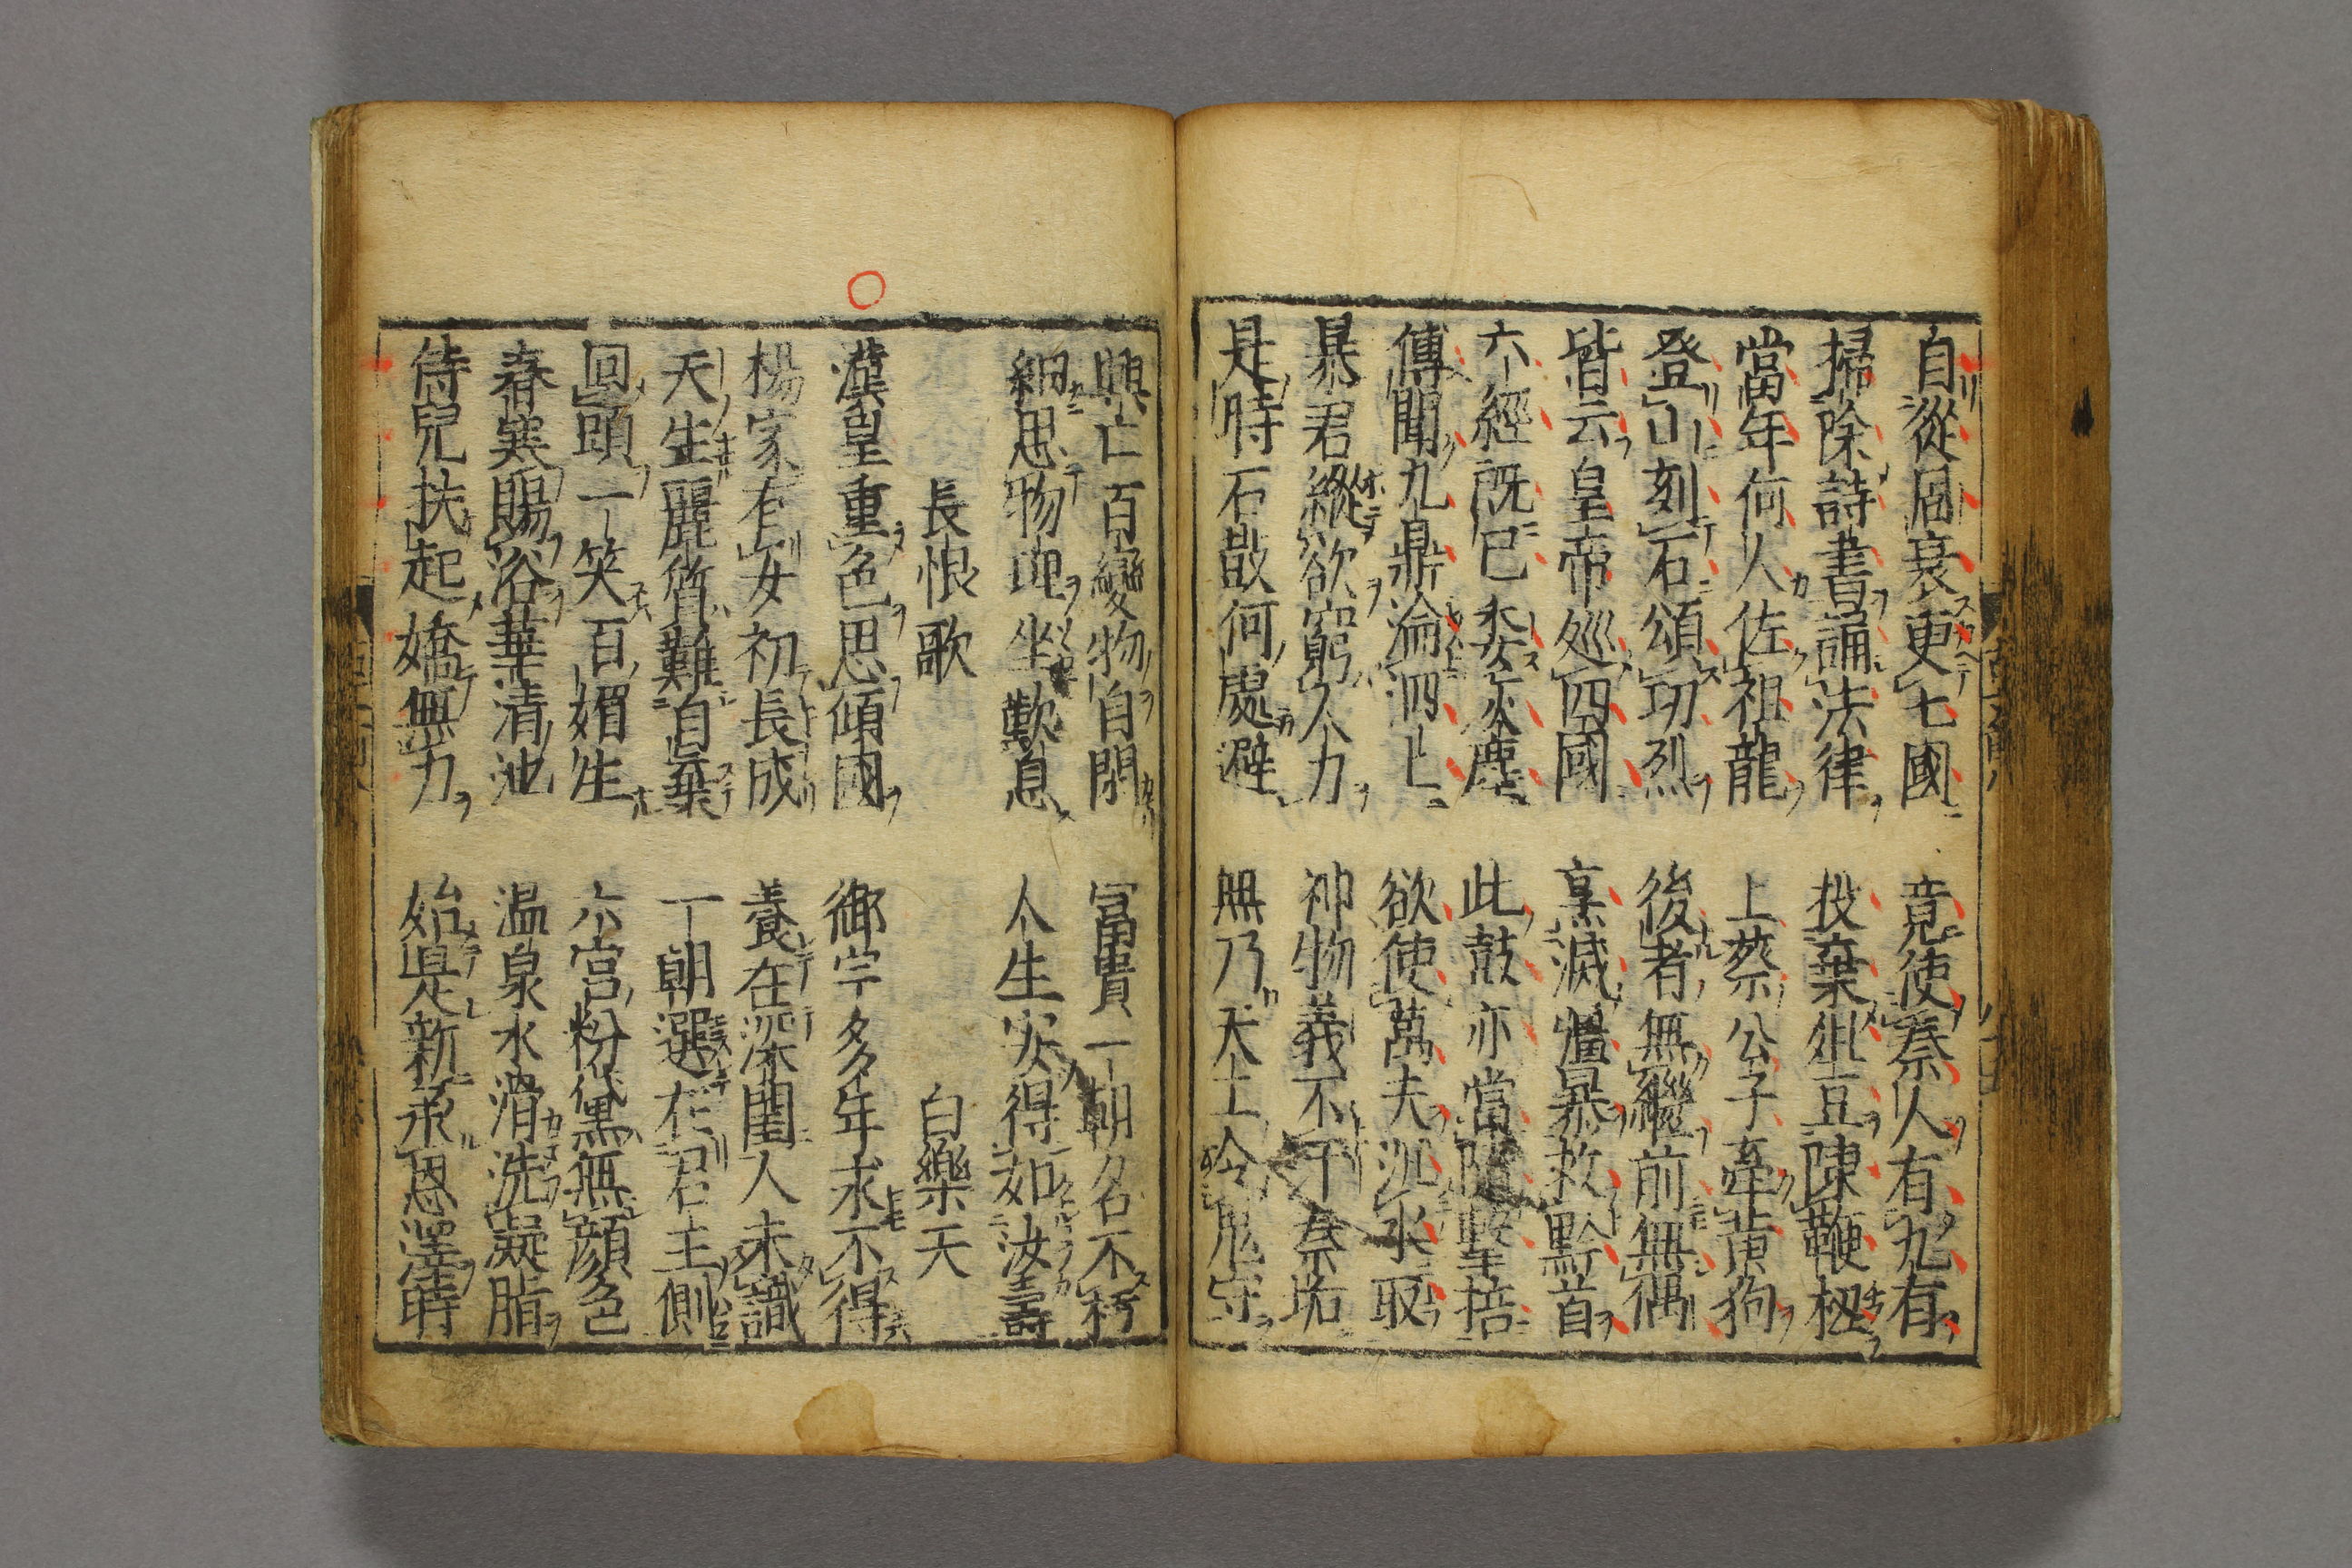 自從周衰更七國　竟使秦人有九有
掃除詩書誦法律　投棄俎豆陳鞭杻
當年何人佐祖龍　上蔡公子牽黃狗
登山刻石頌功烈　後者無繼前無偶
皆云皇帝巡四國　烹滅彊暴救黔首
六經既已委灰塵　此鼓亦當隨擊掊
傳聞九鼎淪泗上　欲使萬夫沉水取
暴君縱欲窮人力　神物義不汙秦垢
是時石鼓何處避　無乃天工令鬼守
興亡百變物自閑　冨貴一朝名不朽
細思物理坐歎息　人生安得如汝壽
長恨歌　白樂天
漢皇重色思傾國　御宇多年求不得
楊家有女初長成　養在深閨人未識
天生麗質難自棄　一朝選在君王側
回頭一笑百媚生　六宮粉黛無顔色
春寒賜浴華清池　温泉水滑洗凝脂
侍兒扶起嬌無力　始是新承恩澤時